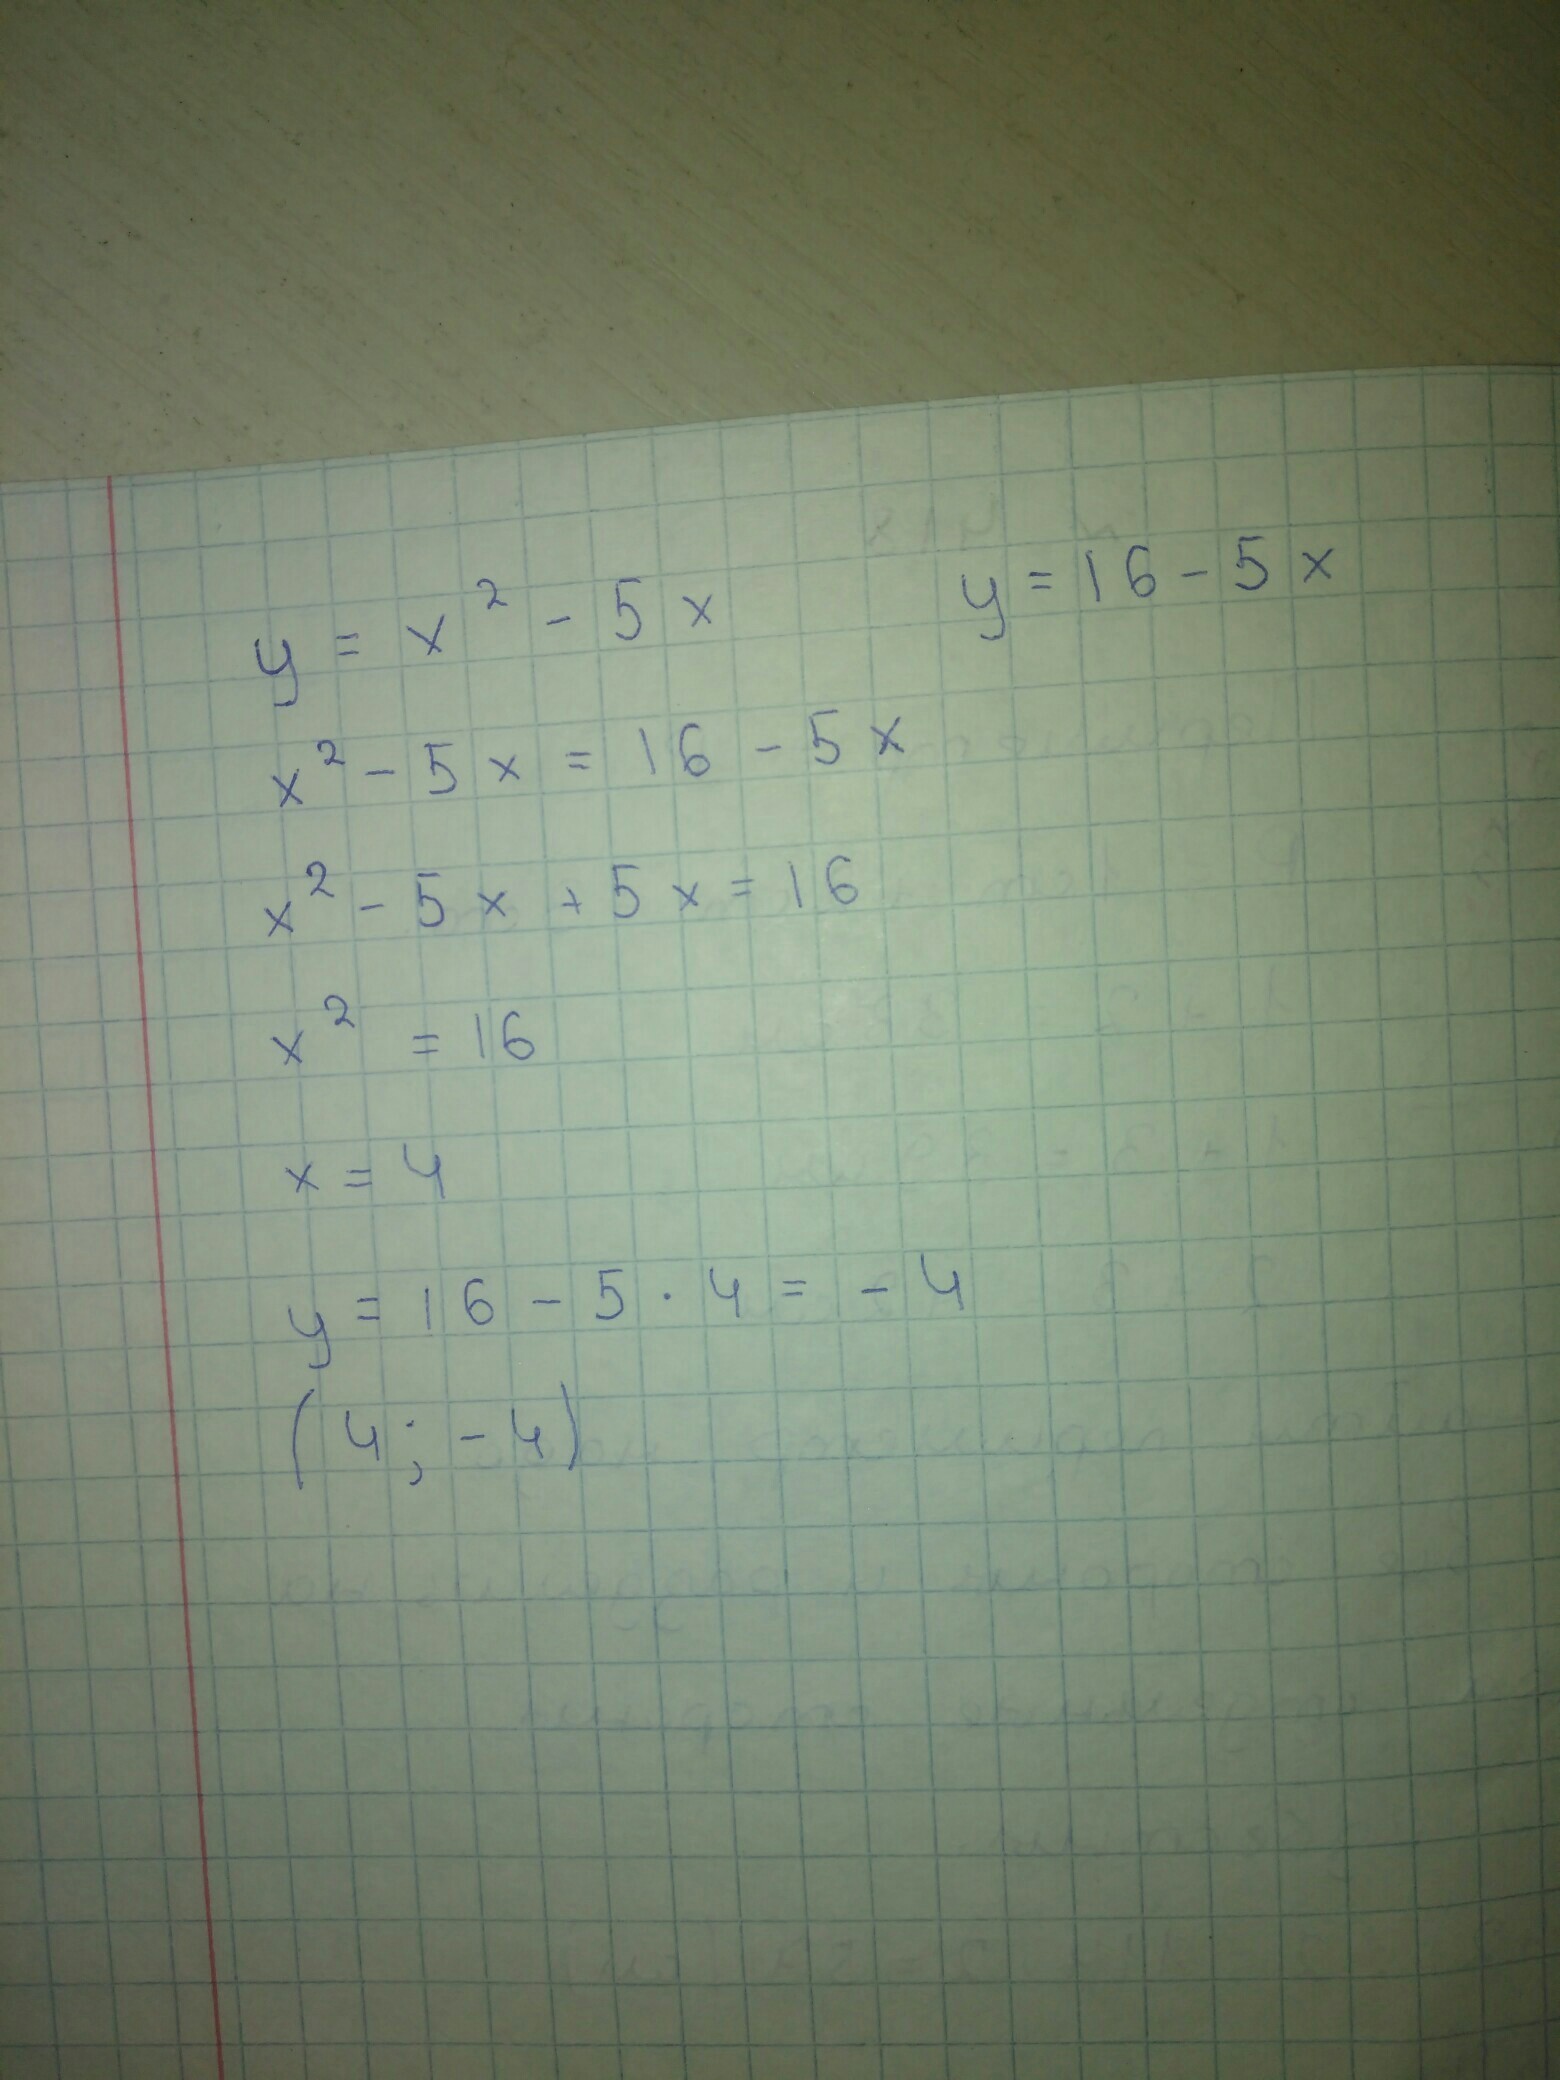 y = x² - 5x y = 16 - 5x
x² - 5x = 16 - 5x
x² - 5x + 5x = 16
x² = 16
x = 4
y = 16 - 5 · 4 = - 4
(4; - 4)